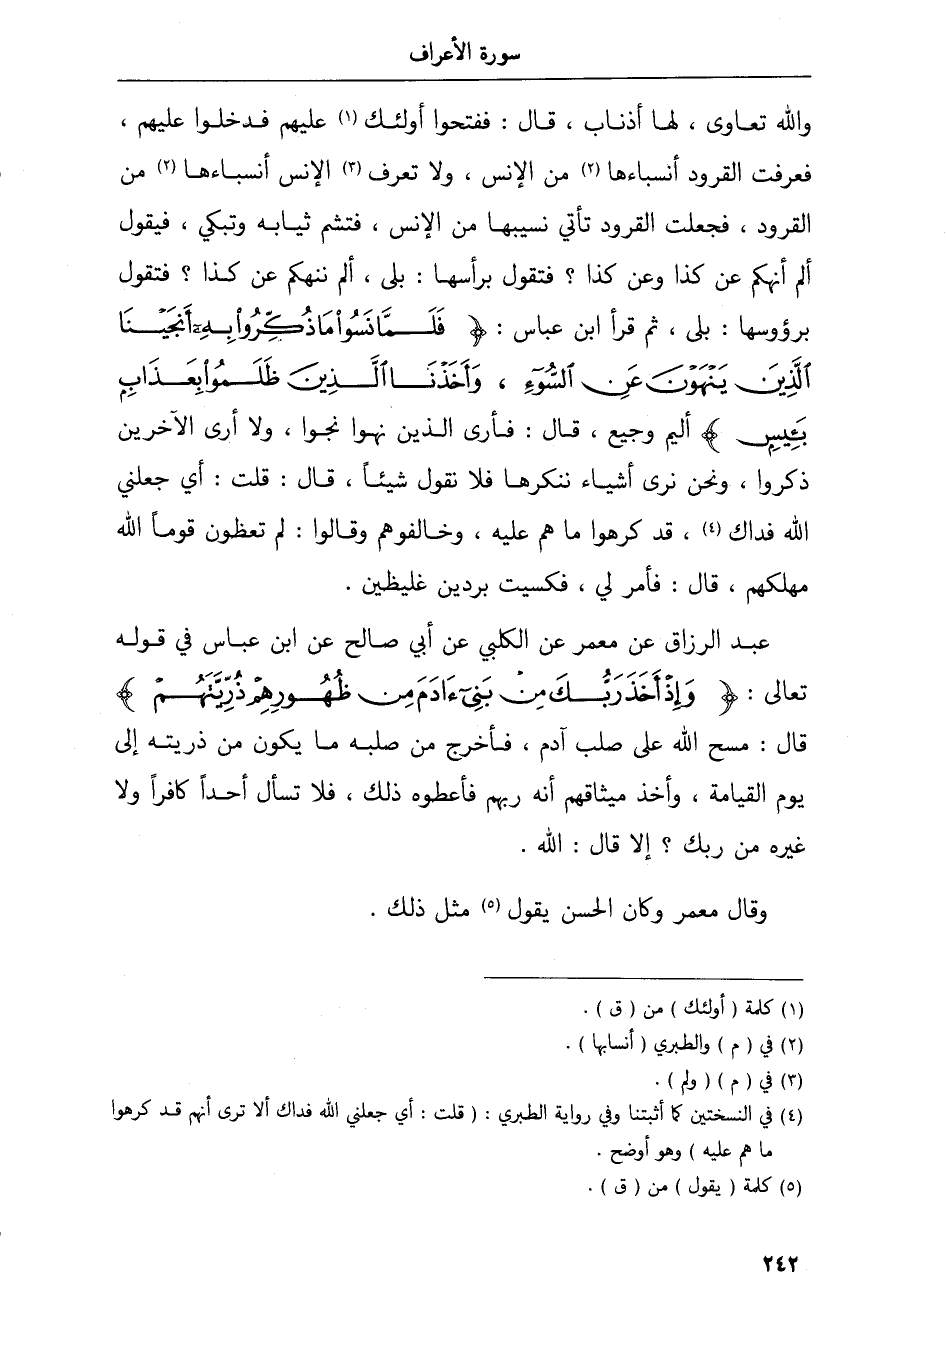 سورة الأعراف
والله تعاوى ، لها أذناب ، قال : ففتحوا أولئك (١) عليهم فدخلوا عليهم ،
فعرفت القرود أنسباءها (٢) من الإنس ، ولا تعرف (٣) الإنس أنسباءها (٢) من
القرود ، فجعلت القرود تأتي نسيبها من الإنس ، فتشم ثيابه وتبكي ، فيقول
ألم أنهكم عن كذا وعن كذا ؟ فتقول برأسها : بلى ، ألم ننهكم عن كذا ؟ فتقول
برؤوسها : بلى ، ثم قرأ ابن عباس : ﴿ فَلَمَّا نَسُوا مَا ذُكِّرُوا بِهِ أَنجَيْنَا
ٱلَّذِينَ يَنْهَوْنَ عَنِ ٱلسُّوٓءِ ، وَأَخَذْنَا ٱلَّذِينَ ظَلَمُوا بِعَذَابٍ
بَـِٔيسٍ ﴾ أليم وجيع ، قال : فأرى الذين نهوا نجوا ، ولا أرى الآخرين
ذكروا ، ونحن نرى أشياء ننكرها فلا نقول شيئاً ، قال : قلت : أي جعلني
الله فداك (٤) ، قد كرهوا ما هم عليه ، وخالفوهم وقالوا : لم تعظون قوماً الله
مهلكهم ، قال : فأمر لي ، فكسيت بردين غليظين .
عبد الرزاق عن معمر عن الكلبي عن أبي صالح عن ابن عباس في قوله
تعالى : ﴿ وَإِذْ أَخَذَ رَبُّكَ مِنۢ بَنِىٓ ءَادَمَ مِن ظُهُورِهِمْ ذُرِّيَّتَهُمْ ﴾
قال : مسح الله على صلب آدم ، فأخرج من صلبه ما يكون من ذريته إلى
يوم القيامة ، وأخذ ميثاقهم أنه ربهم فأعطوه ذلك ، فلا تسأل أحداً كافراً ولا
غيره من ربك ؟ إلا قال : الله .
وقال معمر وكان الحسن يقول (٥) مثل ذلك .
(١) كلمة ( أولئك ) من ( ق ) .
(٢) في ( م ) والطبري ( أنسابها ) .
(٣) في ( م ) ( ولم ) .
(٤) في النسختين كما أثبتنا وفي رواية الطبري : ( قلت : أي جعلني الله فداك ألا ترى أنهم قد كرهوا
ما هم عليه ) وهو أوضح .
(٥) كلمة ( يقول ) من ( ق ) .
٢٤٢